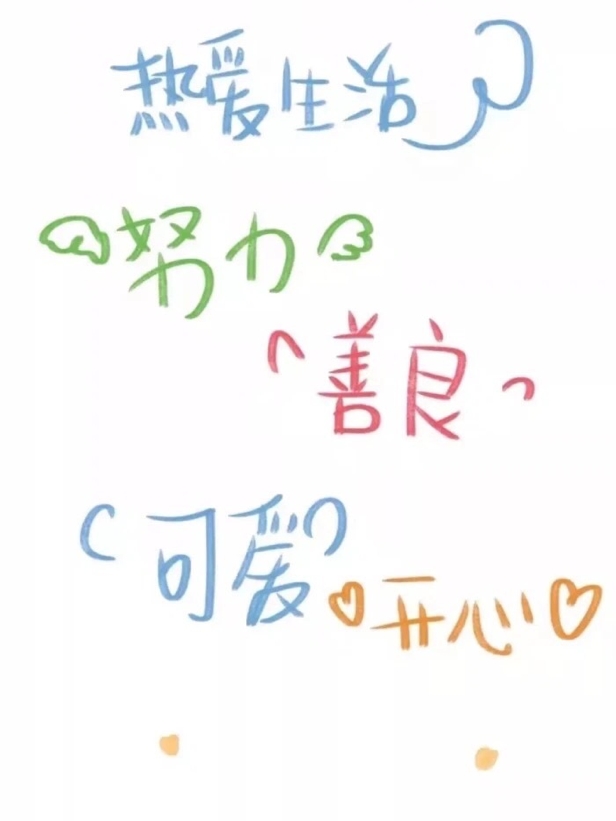 热爱生活
努力
善良
可爱
开心